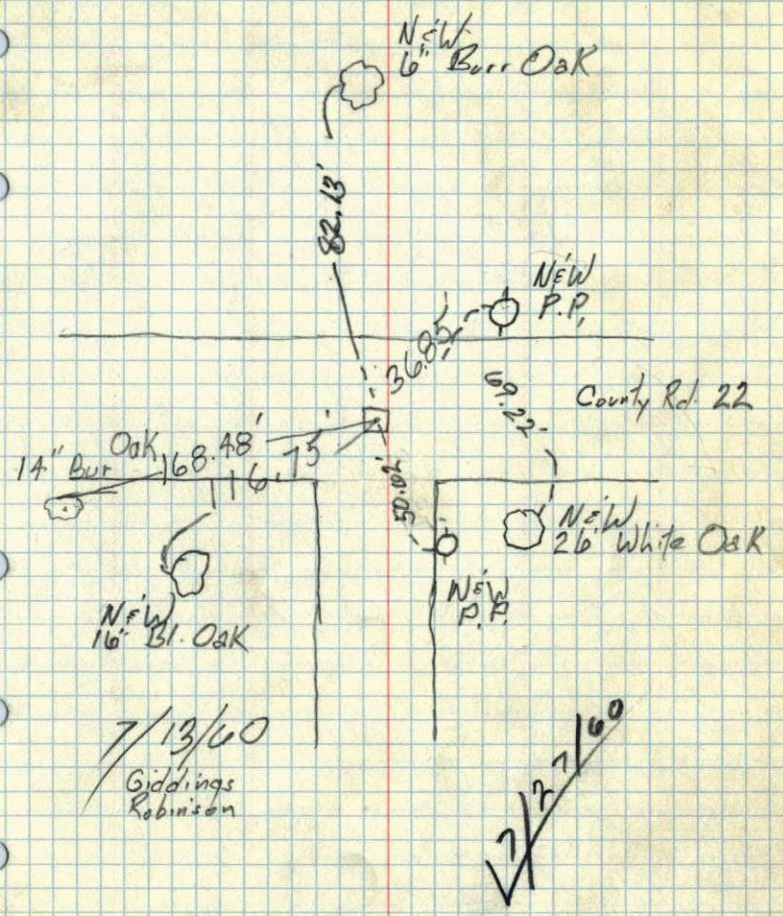 N&W
6" Burr Oak
82.13'
N&W
P.P.
36.85'
69.22'
County Rd. 22
Oak
14" Bur
168.48'
116.75'
50.02'
N&W
26" White Oak
N&W
P.P.
N&W
16" Bl. Oak
7/13/60
Giddings
Robinson
7/27/60